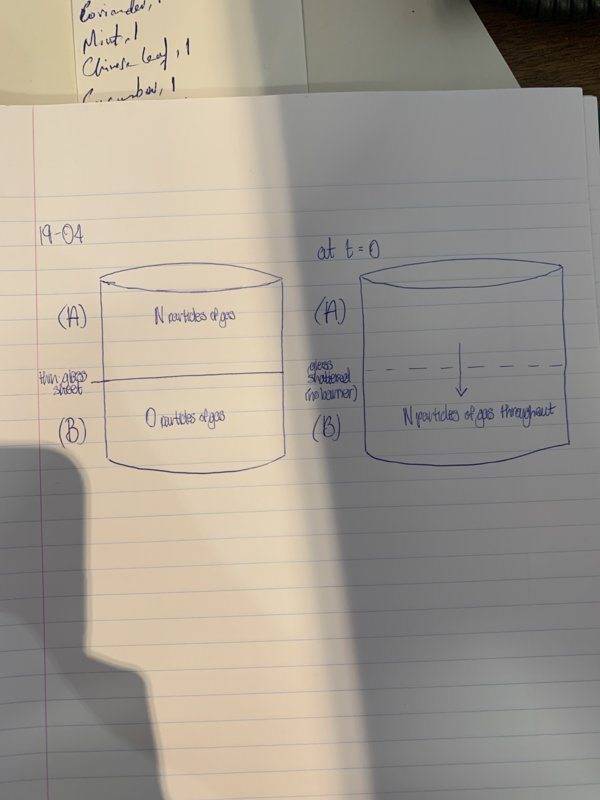 Coriander, 1
Mint, 1
Chinese leaf, 1
Cucumber, 1
19-04
at t = 0
(A)
N particles of gas
(A)
thin glass
sheet
glass
shattered
(no barrier)
(B)
O particles of gas
(B)
N particles of gas throughout